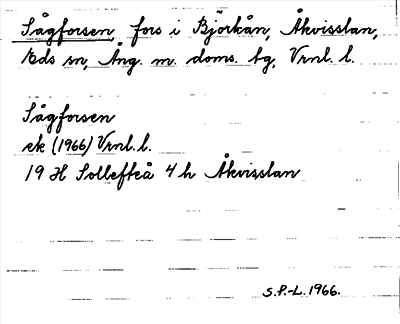 Sågforsen, fors i Björkån, Åkvisslan,
Eds sn, Ång. m. doms. bg, Vrnl. l.
Sågforsen
ek (1966) Vrnl. l.
19 H Sollefteå 4 h Åkvisslan
S.P.-L. 1966.